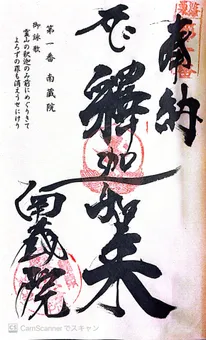 奉納
釋迦如来
南蔵院
第一番南蔵院
御詠歌
霊山の釈迦のみ前にめぐりきて
よろずの罪も消えうせにけり
CamScanner でスキャン